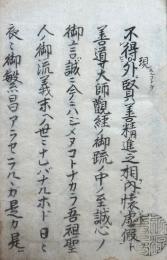 不得外現賢善精進之相内懐虚假ト
善導大師觀經ノ御疏ノ中ノ至誠心ノ
御言誠ニ今ニハジメヌコトナカラ吾祖聖
人ノ御流義末ノ世ニナレバナルホド日ニ
夜ニ御繁昌アラセラルヽカ是カ是